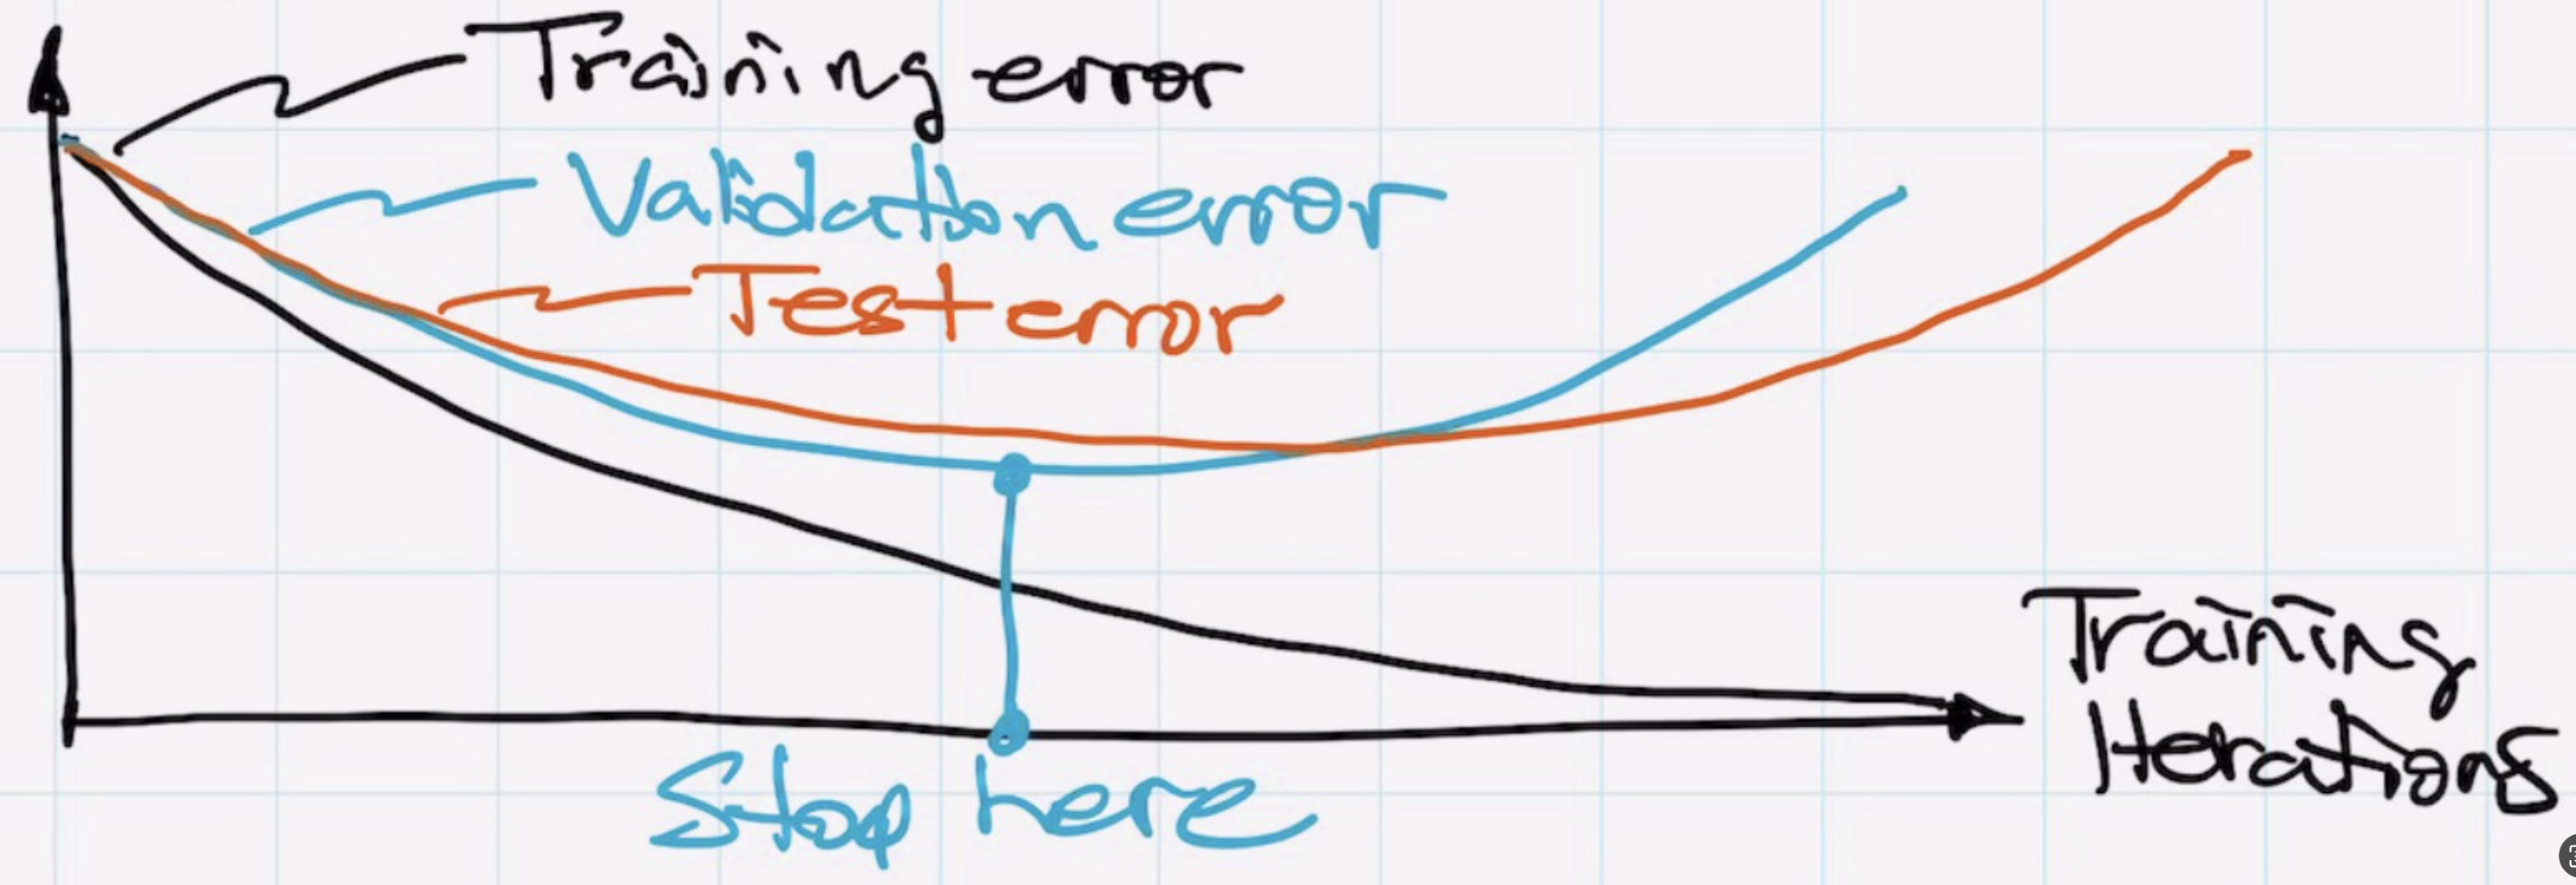 Training error
Validation error
Test error
Training
Iterations
Stop here